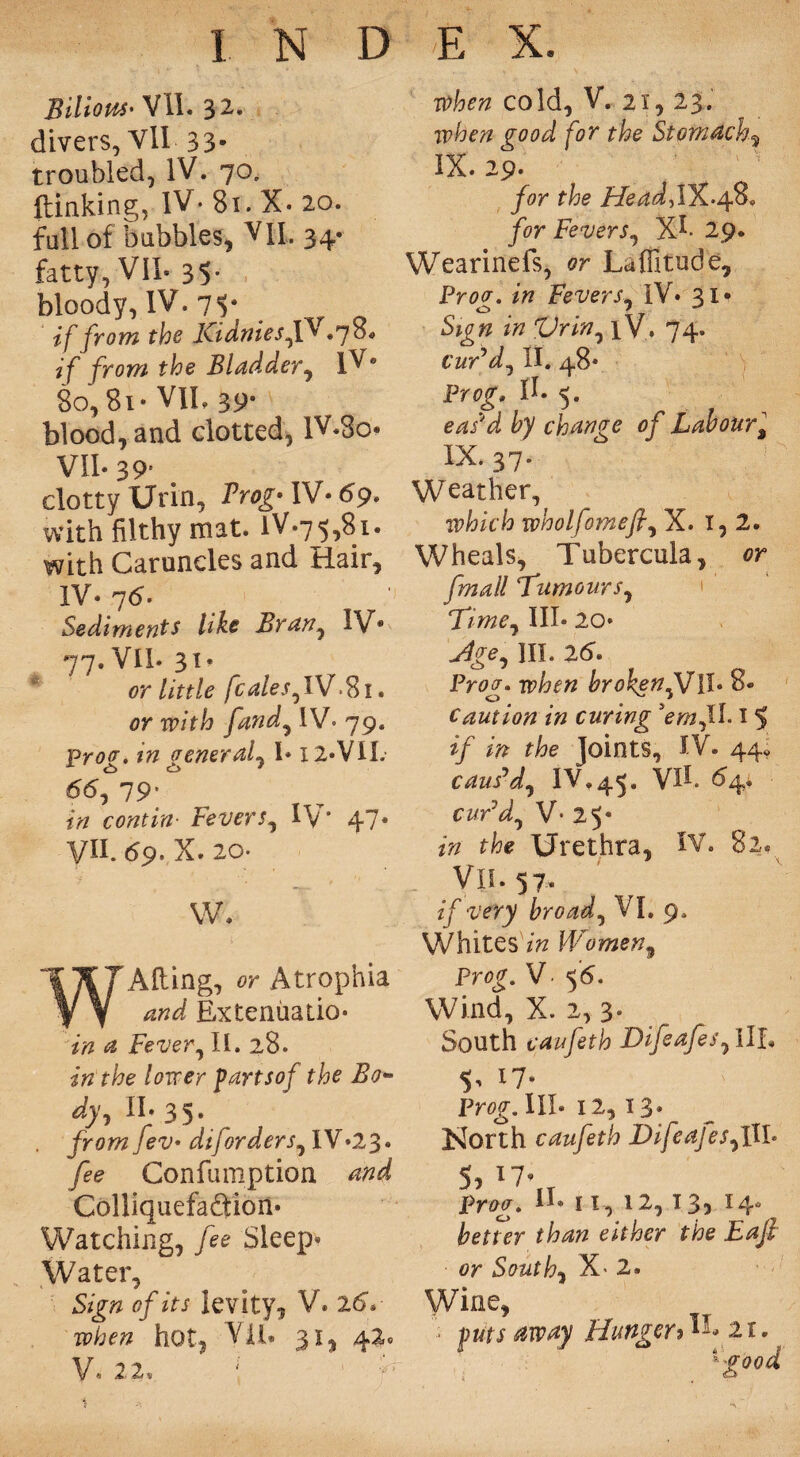 INDEX.
Bilious· VII. 32.
divers, VII 33·
troubled, IV. 70.
ſtinking, IV· 81. X. 20.
full of bubbles, VII. 34·
fatty, VII· 35·
bloody, IV. 75·
if from the Kidnies, IV.78.
if from the Bladder, IV·
80, 81· VII. 39·
blood, and clotted, IV·80·
VII· 39·
clotty Urin, Prog· IV· 69.
with filthy mat. IV·75,81.
with Caruncles and Hair,
IV· 76.
Sediments like Bran, IV·
77. VII· 31·
or little ſcales, IV.81.
or with ſand, IV· 79.
prog. in general, I· 12·VII.
66, 79·
in contin· Fevers, IV· 47.
VII. 69. X. 20·
W.
WAſting, or Atrophia
and Extenuatio·
in a Fever, II. 28.
in the lower partsof the Bo-
dy, II· 35.
from fev· diſorders, IV·23.
ſee Conſumption and
Colliquefaction·
Watching, ſee Sleep·
Water,
Sign of its levity, V. 26.
when hot, VII. 31, 42.
V. 22.
when cold, V. 21, 23.
when good for the Stomach,
IX. 29.
for the Head, IX.48.
for Fevers, XI. 29.
Wearineſs, or Laſſitude,
Prog. in Fevers, IV· 31·
Sign in Urin, IV. 74.
cur'd, II. 48.
Prog. II. 5.
eas'd by change of Labour,
IX. 37.
Weather,
which wholſomeſt, X. 1, 2.
Wheals, Tubercula, or
ſmall Tumours,
Time, III. 20·
Age, III. 26.
Prog. when broken, VII· 8·
Caution in curing 'em, II. 15
if in the Joints, IV. 44.
caus'd, IV.45. VII. 64.
cur'd, V· 25·
in the Urethra, IV. 82.
VII· 57.
if very broad, VI. 9.
Whites in Women,
Prog. V. 56.
Wind, X. 2, 3.
South cauſeth Diſeaſes, III.
5, 17.
Prog. III· 12, 13.
North cauſeth Diſeaſes, III·
5, 17.
Prog. II· 11, 12, 13, 14.
better than either the Eaſt
or South, X· 2.
Wine,
puts away Hunger, II. 21.
good